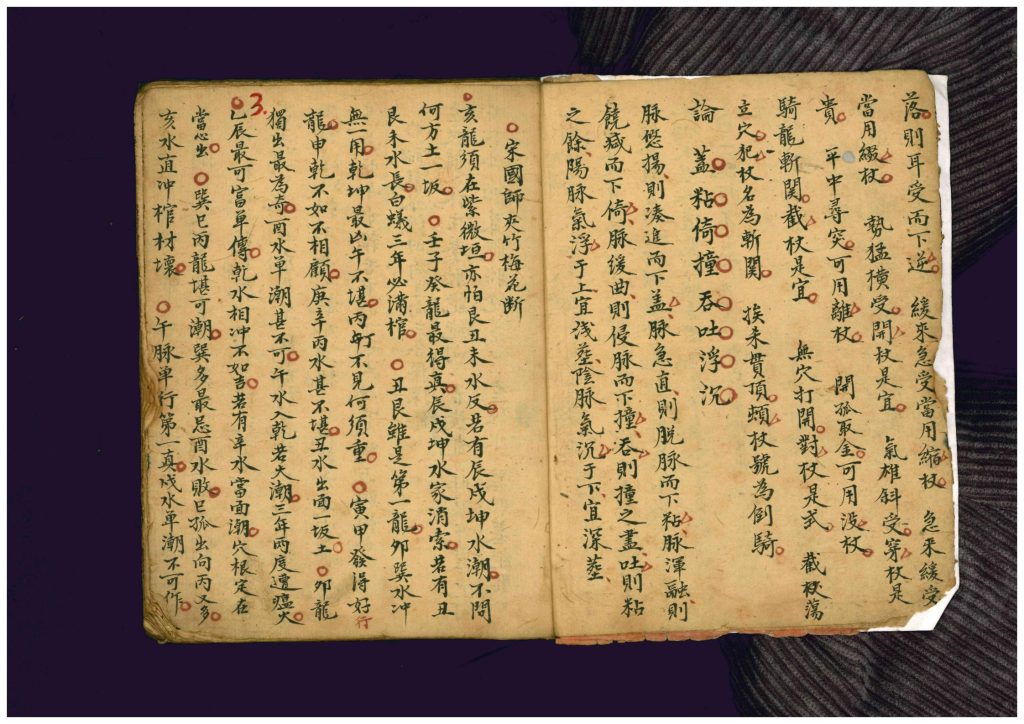 落則耳受而下逆　緩來急受當用縮杖　急來緩受
當用綴杖　勢猛橫受開杖是宜　氣雄斜受穿杖是
貴　平中尋突可用離杖　開孤取金可用没杖
騎龍斬関截杖是宜　無穴打開對杖是式　截杖蕩
立穴犯杖名為斬関　挨来貫頂頓杖號為倒騎
論　蓋粘倚撞吞吐浮沉
脉悠揚則湊進而下盖脉急直則脱脉而下粘脉渾融則
饒减而下倚脉緩曲則侵脉而下撞吞則撞之盡吐則粘
之餘陽脉氣浮于上宜浅塟陰脉氣沉于下宜深塟
宋國師夾竹梅花断
亥龍須在紫微垣亦怕艮丑未水反若有辰戌坤水潮不問
何方土一坂　壬子癸龍最得真辰戌坤水家消索若有丑
艮未水長白蟻三年必満棺　丑艮雖是第一龍夘巽水冲
無一用乾坤最凶午不堪丙丁不見何須重　寅甲發得好行
龍申乾不如不相顧庚辛丙水甚不堪丑水出面一坂土　夘龍
獨出最為奇酉水单潮甚不可午水入乾若大潮三年两度遭瘟火
3.
乙辰最可富单傳乾水相冲不如吉若有辛水當面潮穴根定在
當心出　巽巳丙龍堪可潮巽多最忌酉水敗巳孤出向丙又多
亥水直冲棺材壊　午脉单行第一真戌水单潮不可作